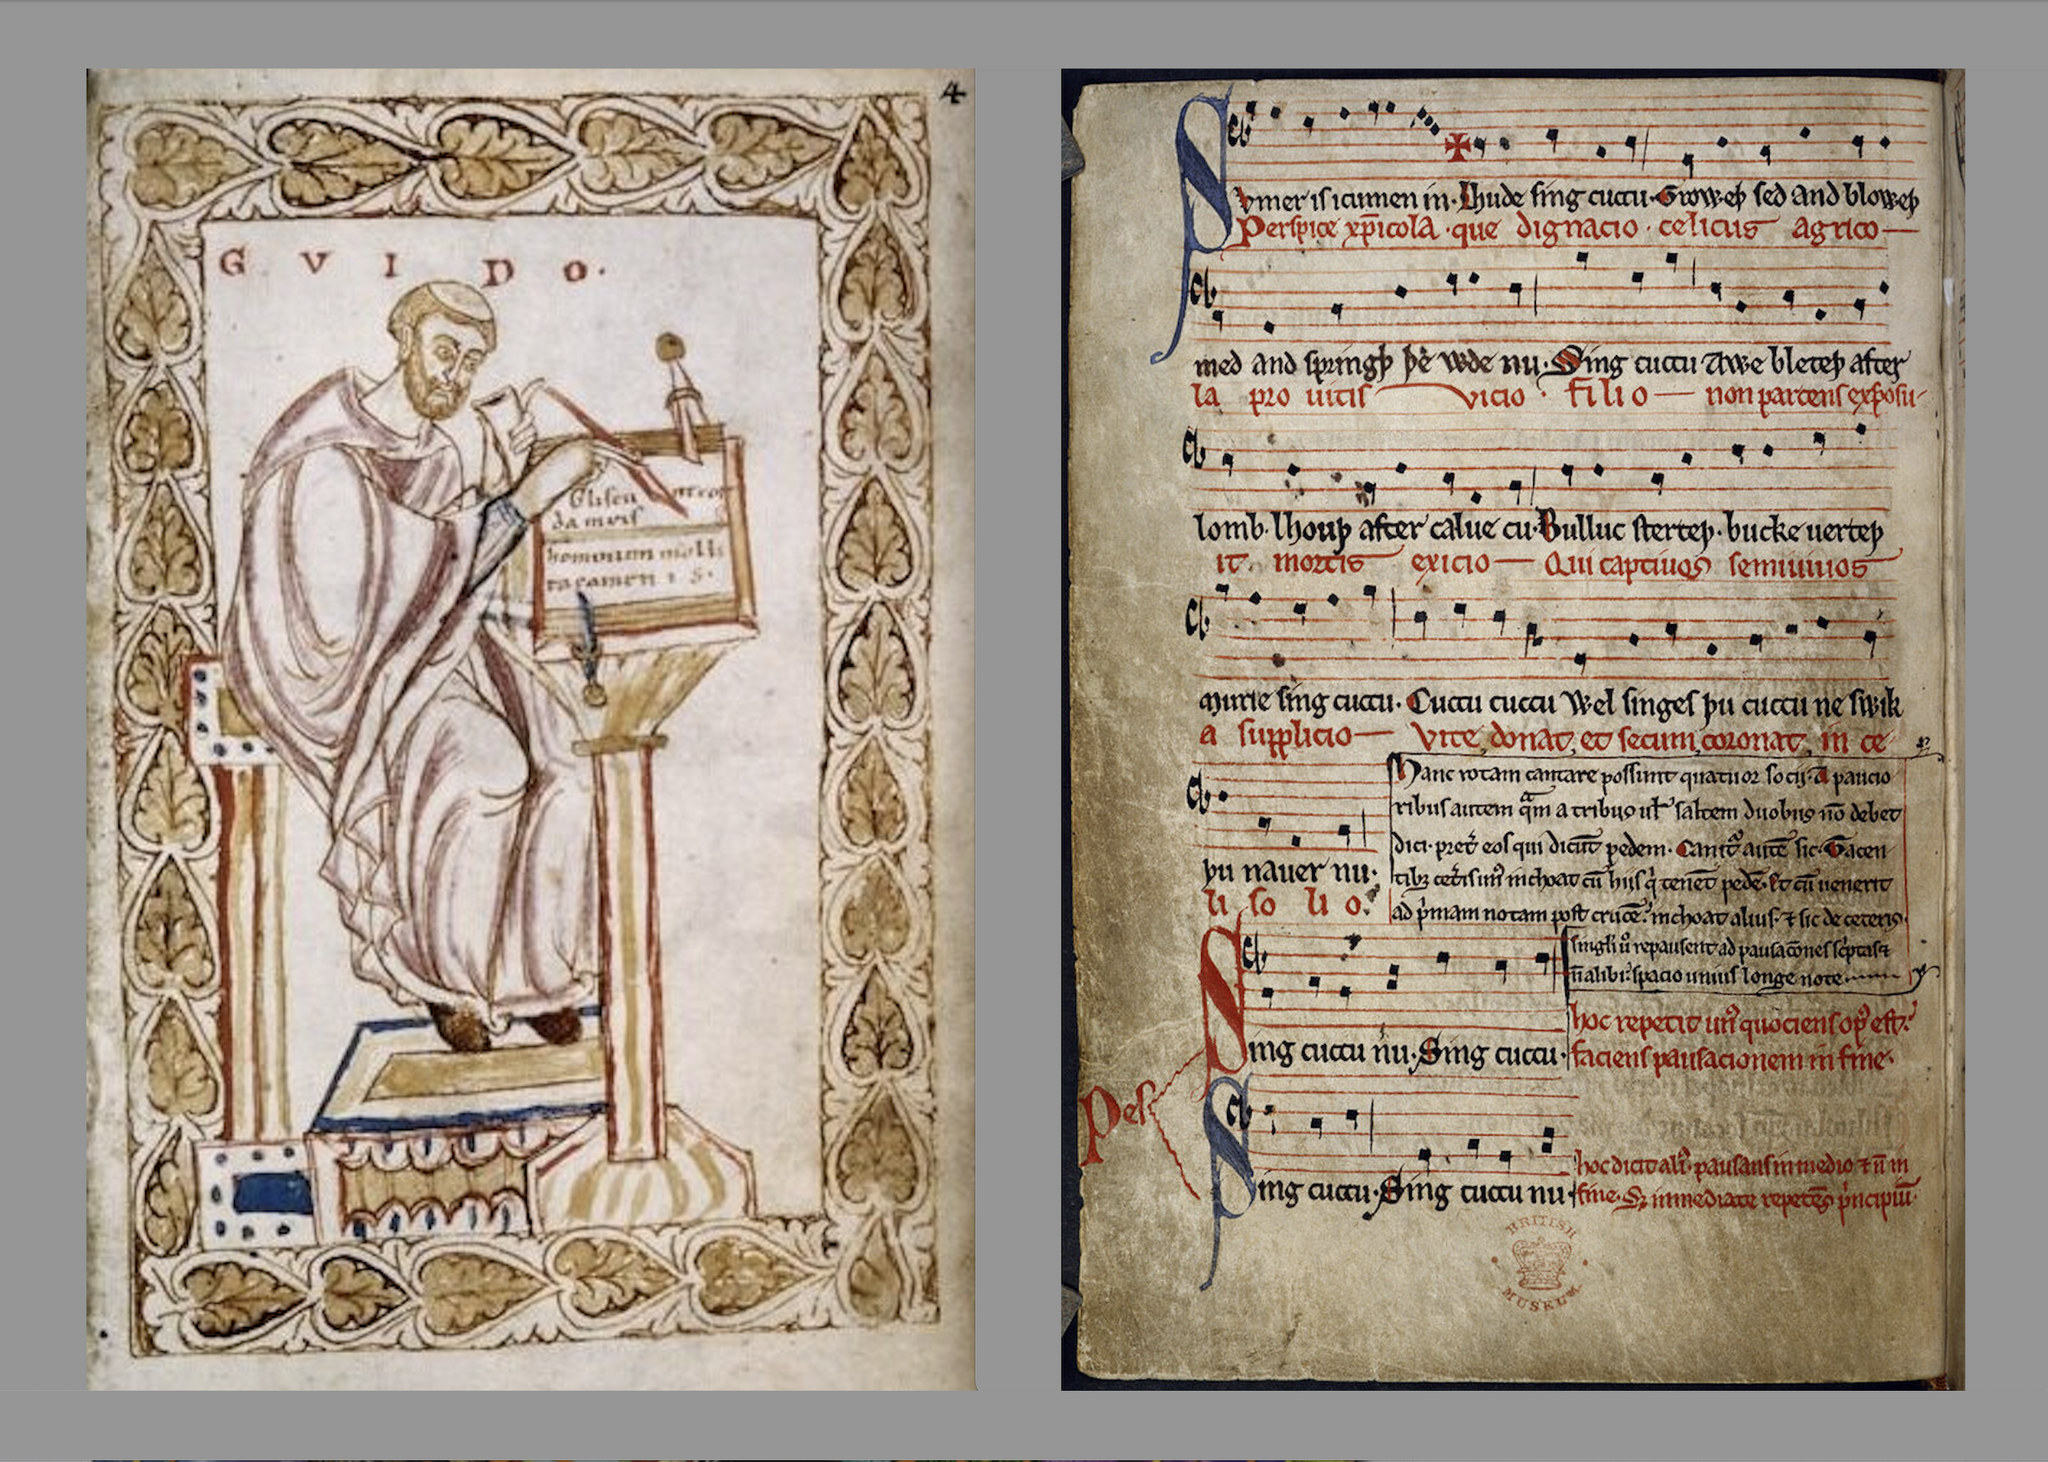 4
GVIDO.
hominum molli
ta camenis.
Svmer is icumen in. Lhude sing cuccu. Groweþ sed and bloweþ
Perspice xp̄icola. que dignacio. celicus agrico
med and springþ þe wde nu. Sing cuccu Awe bleteþ after
la pro uitis vicio. filio non parcens exposu
lomb. lhouþ after calue cu. Bulluc sterteþ. bucke uerteþ
it. mortis exicio Qui captiuos semiuiuos
murie sing cuccu. Cuccu cuccu Wel singes þu cuccu ne swik
a supplicio Vite donat, et secum coronat, in ce
þu nauer nu.
li solio.
Hanc rotam cantare possunt quatuor socij. A paucio
ribus autem q̄m a tribus uł saltem duobus nō debet
dici. pret̾ eos qui dicūt pedem. Canit̾ autē sic. Tacen
tibꝫ cet̾is unꝰ inchoat cū hijs q̇ tenēt pedē. Et cū uenerit
ad p̾mam notam post crucē. inchoat alius. ⁊ sic de ceteris.
singłi u̾ repausent ad pausacōnes sc̾ptas ⁊
n̄ alibi. spacio unius longe note
Sing cuccu nu. Sing cuccu.
hoc repetit unꝰ quociens opꝰ est.
faciens pausacionem in fine.
Pes
Sing cuccu. Sing cuccu nu.
hoc dicit aliꝰ. pausans in medio ⁊ n̄ in
fine. Sꝫ immediate repetēs p̾ncipiū.
BRITISH
MUSEUM